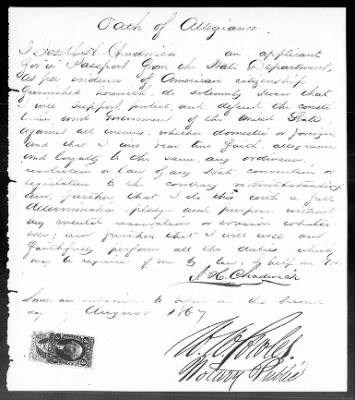 Oath of Allegiance
I Joseph H. Chadwick an applicant
for a Passport from the State Department,
as per evidence of American citizenship
furnished herewith, do solemnly swear that
I will support, protect, and defend the consti
tution and Government of the United States
against all enemies, whether domestic or foreign,
and that I will bear true faith, allegiance
and loyalty to the same, any ordinance,
resolution or law of any State convention or
legislation to the contrary notwithstanding,
and further that I do this with a full
determination pledge and purpose without
any mental reservation or evasion whatso-
ever; and further that I will well and
faithfully perform all the duties which
may be required of me by law; so help me God.
J. H. Chadwick
Sworn and subscribed to before me this
day of August 1867
Notary Public